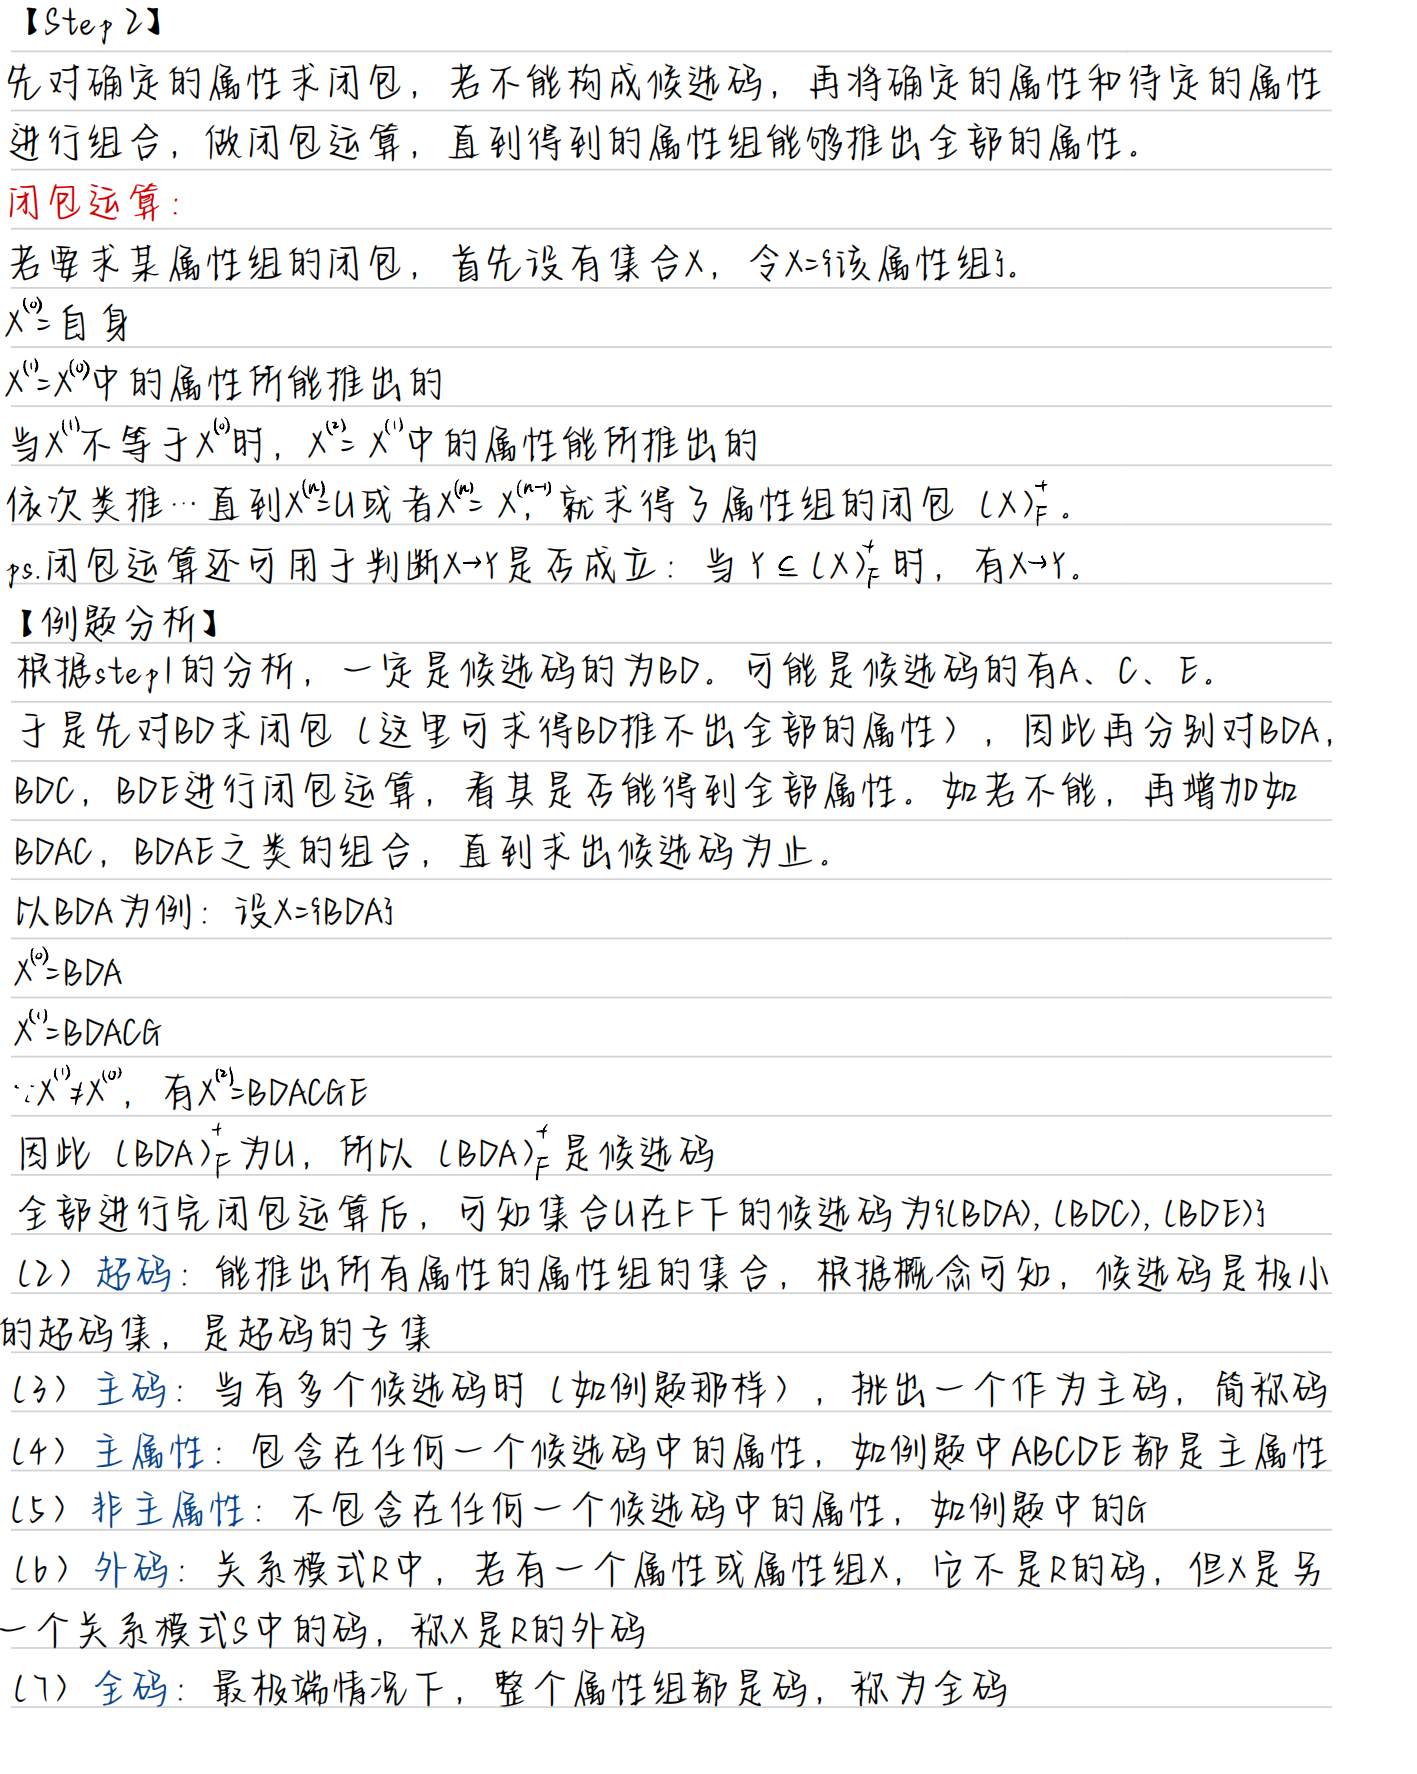 【Step 2】
先对确定的属性求闭包，若不能构成候选码，再将确定的属性和待定的属性
进行组合，做闭包运算，直到得到的属性组能够推出全部的属性。
闭包运算：
若要求某属性组的闭包，首先设有集合X，令X={该属性组}。
X⁽⁰⁾=自身
X⁽¹⁾=X⁽⁰⁾中的属性所能推出的
当X⁽¹⁾不等于X⁽⁰⁾时，X⁽²⁾=X⁽¹⁾中的属性能所推出的
依次类推…直到X⁽ⁿ⁾=U或者X⁽ⁿ⁾=X⁽ⁿ⁻¹⁾，就求得了属性组的闭包（X）⁺F。
ps.闭包运算还可用于判断X→Y是否成立：当Y⊆（X）⁺F时，有X→Y。
【例题分析】
根据step1的分析，一定是候选码的为BD。可能是候选码的有A、C、E。
于是先对BD求闭包（这里可求得BD推不出全部的属性），因此再分别对BDA，
BDC，BDE进行闭包运算，看其是否能得到全部属性。如若不能，再增加如
BDAC，BDAE之类的组合，直到求出候选码为止。
以BDA为例：设X={BDA}
X⁽⁰⁾=BDA
X⁽¹⁾=BDACG
∵X⁽¹⁾≠X⁽⁰⁾，有X⁽²⁾=BDACGE
因此（BDA）⁺F为U，所以（BDA）⁺F是候选码
全部进行完闭包运算后，可知集合U在F下的候选码为{(BDA),(BDC),(BDE)}
（2）超码：能推出所有属性的属性组的集合，根据概念可知，候选码是极小
的超码集，是超码的子集
（3）主码：当有多个候选码时（如例题那样），挑出一个作为主码，简称码
（4）主属性：包含在任何一个候选码中的属性，如例题中ABCDE都是主属性
（5）非主属性：不包含在任何一个候选码中的属性，如例题中的G
（6）外码：关系模式R中，若有一个属性或属性组X，它不是R的码，但X是另
一个关系模式S中的码，称X是R的外码
（7）全码：最极端情况下，整个属性组都是码，称为全码